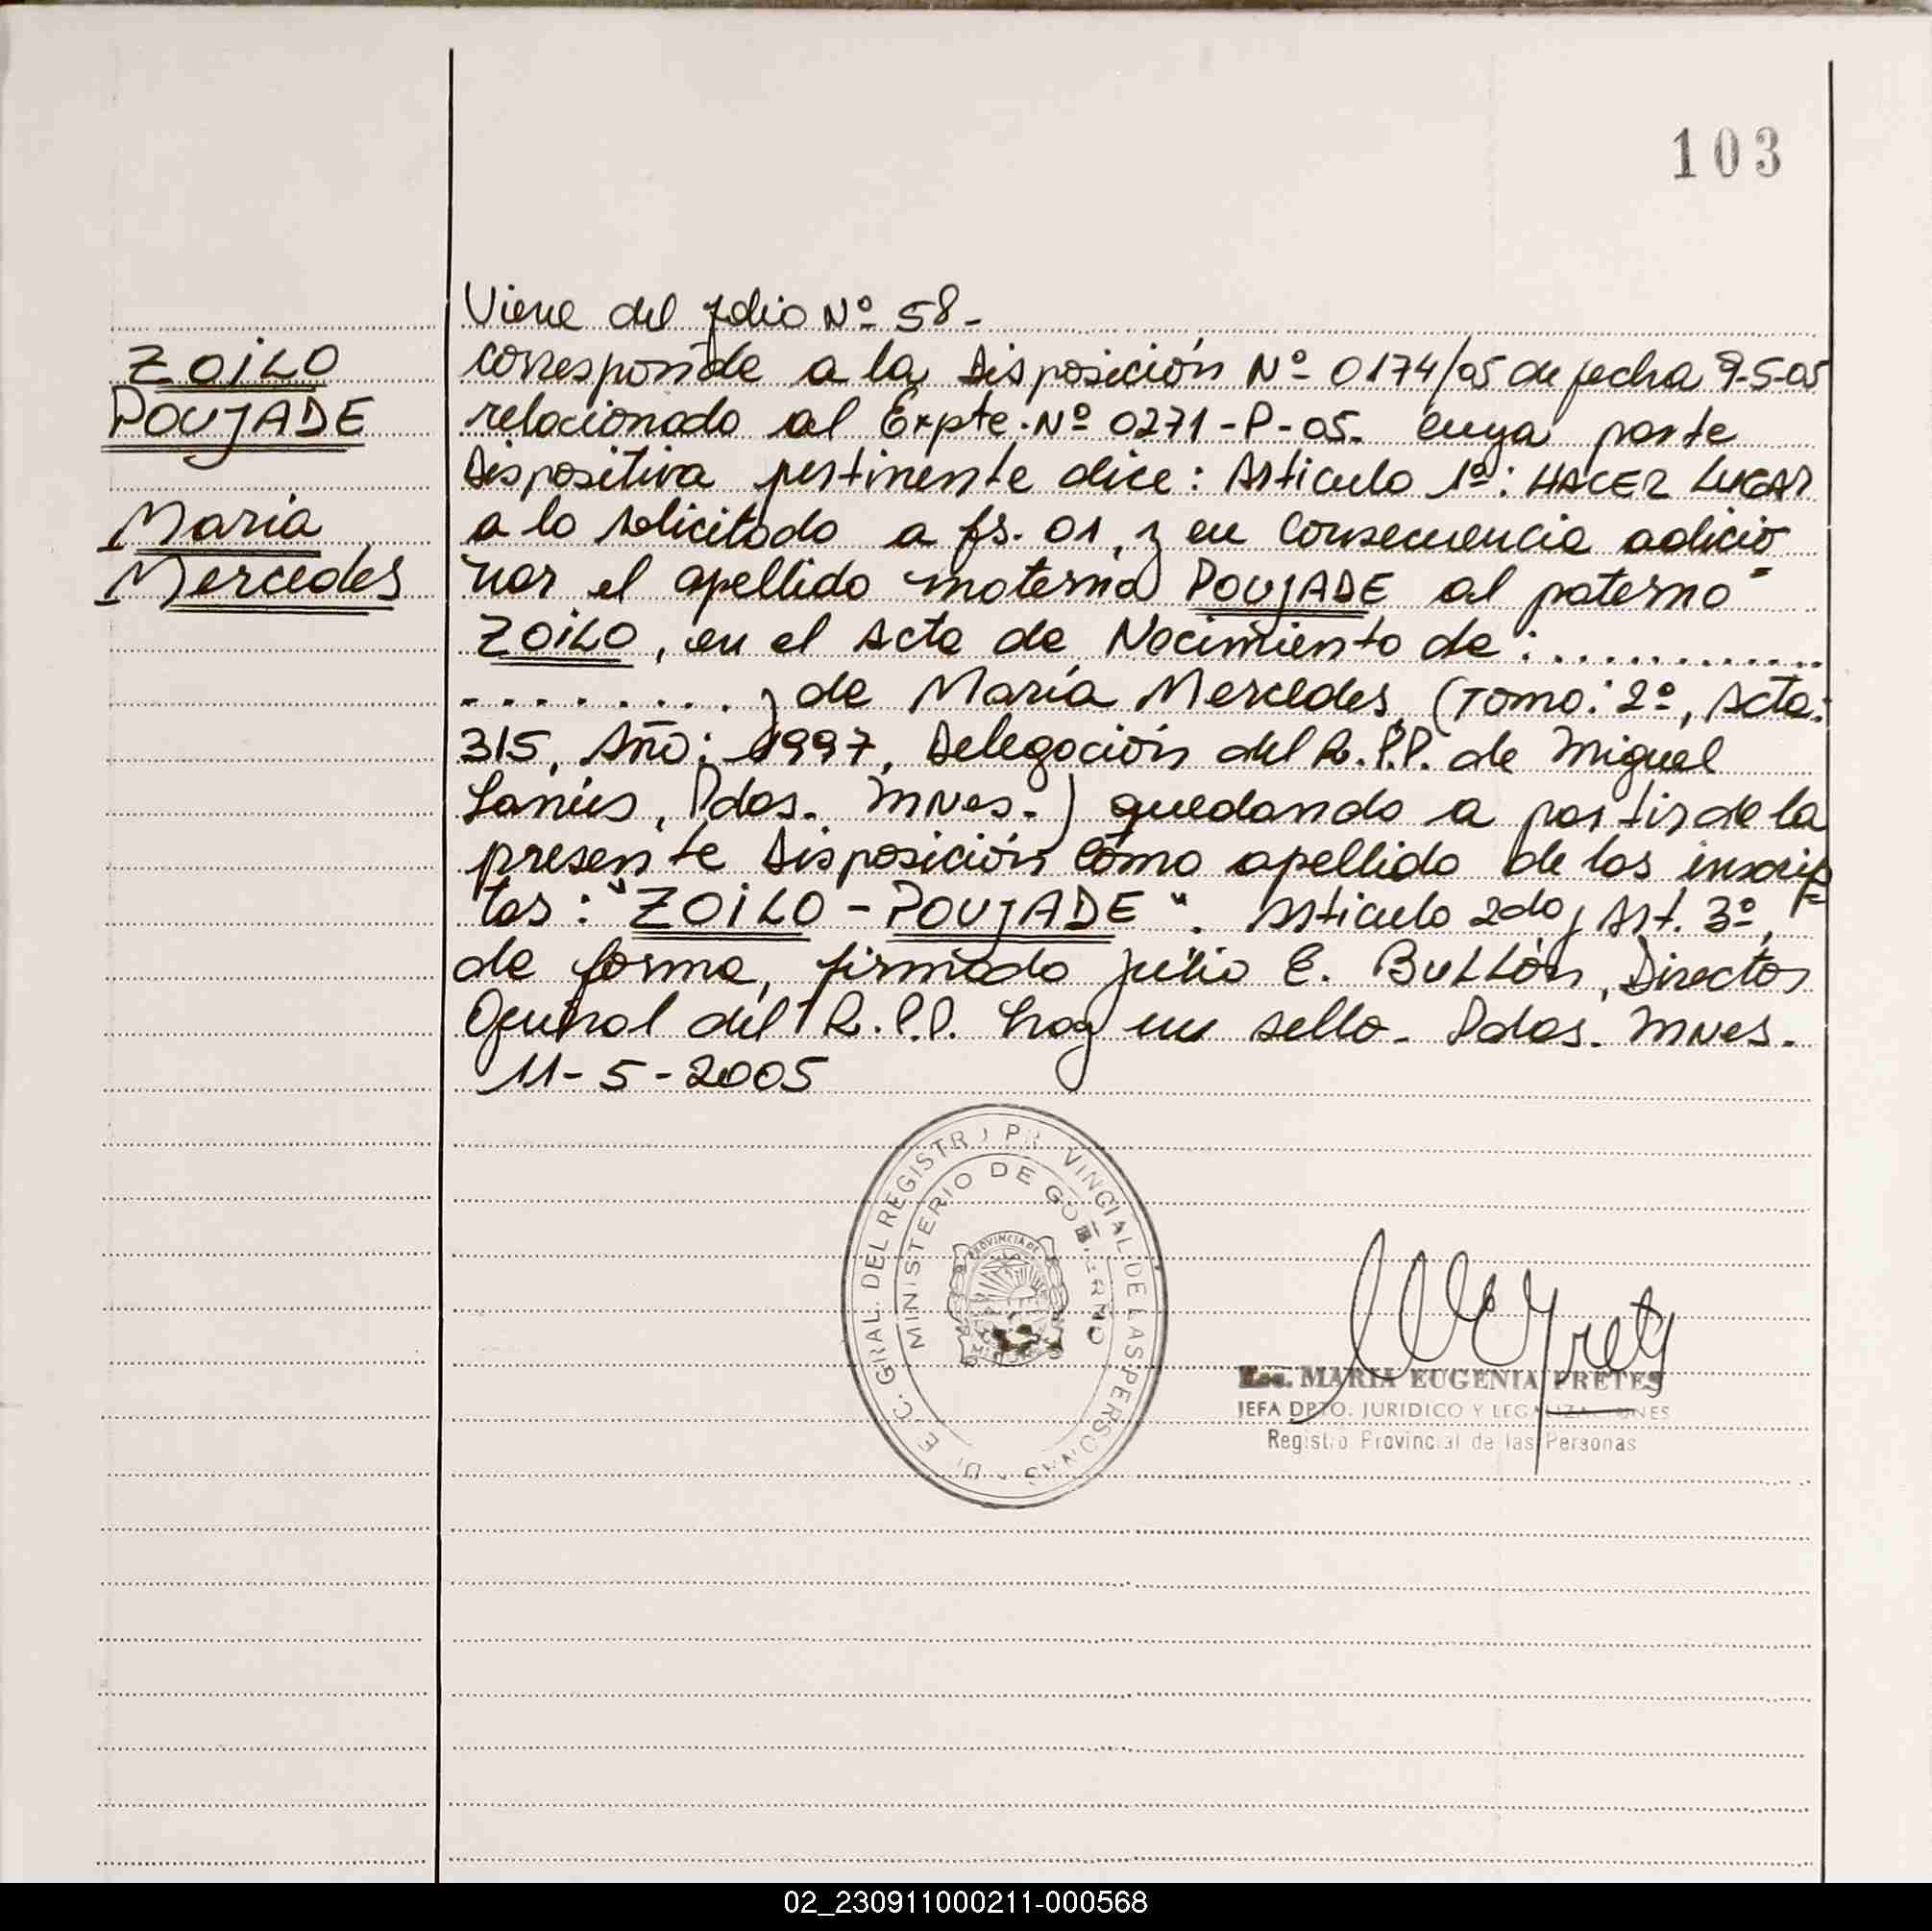 103
Viene del folio Nº 58-
ZOiLO
POUJADE
María
Mercedes
corresponde a la Disposición Nº 0174/05 de fecha 9-5-05
relacionado al Expte. Nº 0271-P-05. cuya parte
Dispositiva pertinente dice: Articulo 1º: HACER LUGAR
a lo solicitado a fs. 01, y en consecuencia adicio
nar el apellido materno POUJADE al paterno
ZOiLO, en el Acta de Nacimiento de: ............
........, de María Mercedes, (Tomo: 2º, Acta:
315, Año: 1997, Delegación del R.P.P. de Miguel
Lanús, Pdas. MNes.) quedando a partir de la
presente Disposición como apellido de los inscrip
tos: "ZOiLO - POUJADE". Articulo 2do y Art. 3º,
de forma, firmado Julio E. BULLón, Director
General del R.P.P. hay un sello. Pdas. MNes.
11-5-2005
MINISTERIO DE GOBIERNO
GRAL. DEL REGISTRO PROVINCIAL DE LAS PERSONAS
PROVINCIA DE
MARIA EUGENIA PRETES
JEFA DPTO. JURIDICO Y LEGALIZACIONES
Registro Provincial de las Personas
02_230911000211-000568